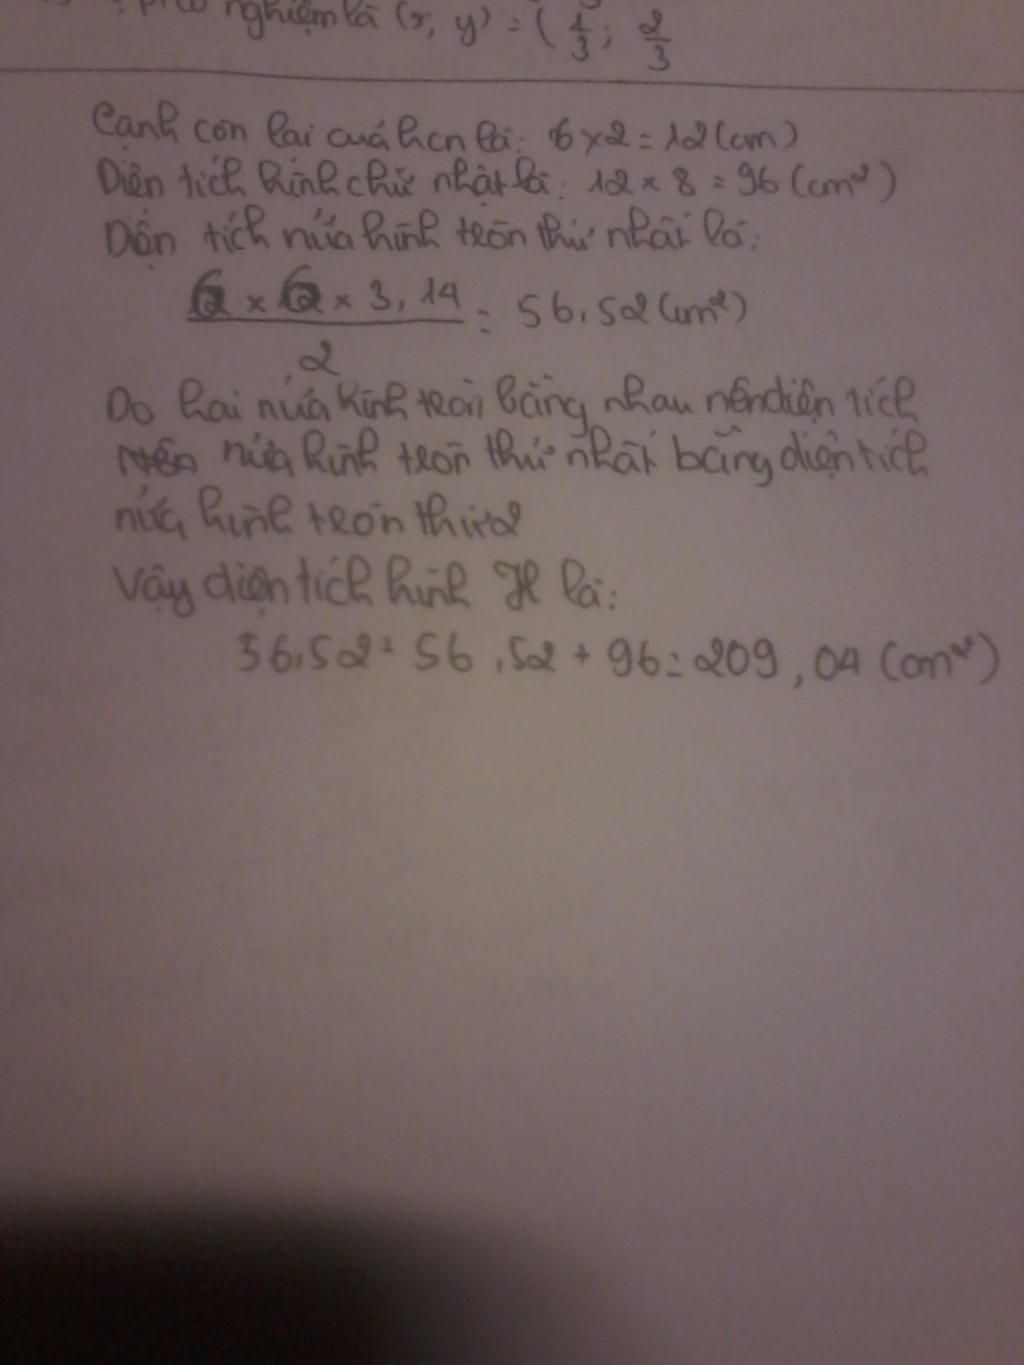 nghiệm là (x, y) = ( 1/3 ; 2/3
Cạnh còn lại cuả hcn là: 6 x 2 = 12 (cm)
Diện tích hình chữ nhật là: 12 x 8 = 96 (cm²)
Diện tích nửa hình tròn thứ nhất là:
6 x 6 x 3,14 / 2 = 56,52 (cm²)
Do hai nửa hình tròn bằng nhau nên diện tích
nửa hình tròn thứ nhất bằng diện tích
nửa hình tròn thứ 2
Vậy diện tích hình H là:
56,52 + 56,52 + 96 = 209,04 (cm²)